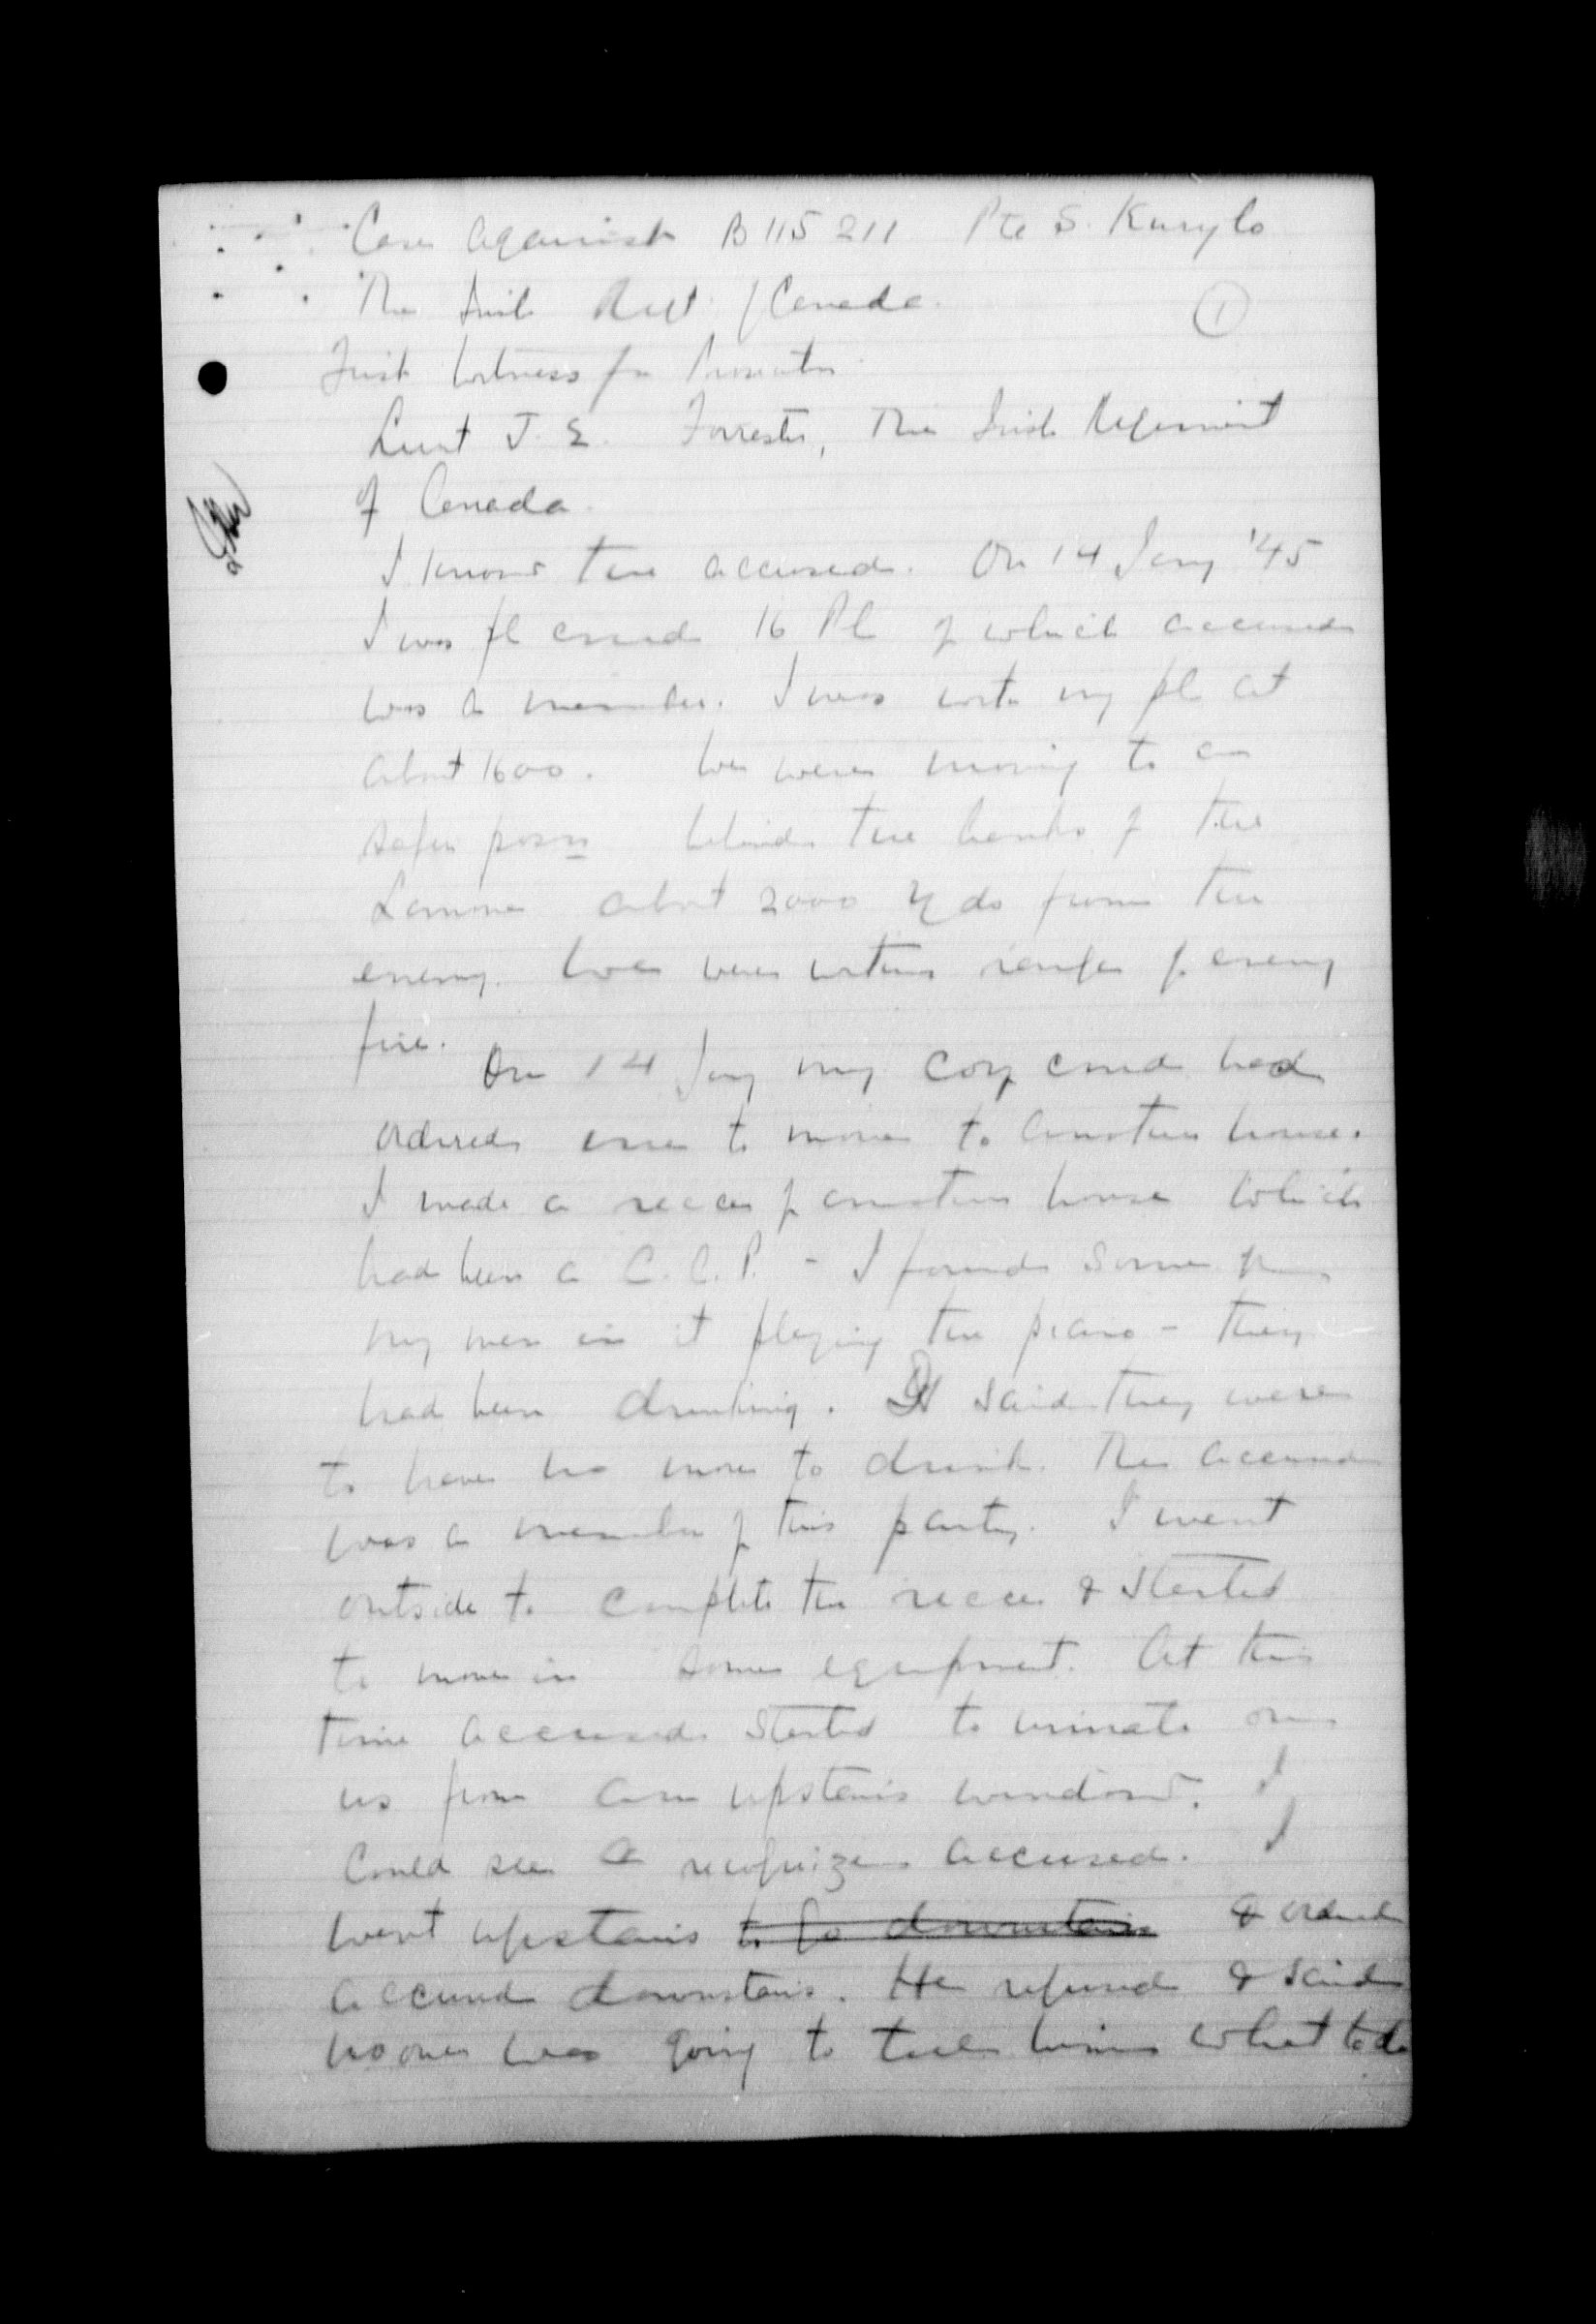 Case against B 115211 Pte S. Kurylo
The Irish Regt of Canada.
①
First Witness for Prosecution
Lieut J. E. Forrester, The Irish Regiment
of Canada.
I know the accused. On 14 Jany '45
I was pl comd 16 Pl of which accused
was a member. I was with my pl at
about 1600. We were moving to a
safer posn behind the banks of the
Lamone about 2000 yds from the
enemy. We were within range of enemy
fire.
On 14 Jany my coy comd had
ordered me to move to another house.
I made a recce of another house which
had been a C.C.P. - I found some of
my men in it playing the piano - they
had been drinking. I said they were
to have no more to drink. The accused
was a member of this party. I went
outside to complete the recce & started
to move in some equipment. At this
time accused started to urinate on
us from an upstairs window. I
could see & recognize accused. I
went upstairs to go downstairs & ordered
accused downstairs. He refused & said
no one was going to tell him what to do